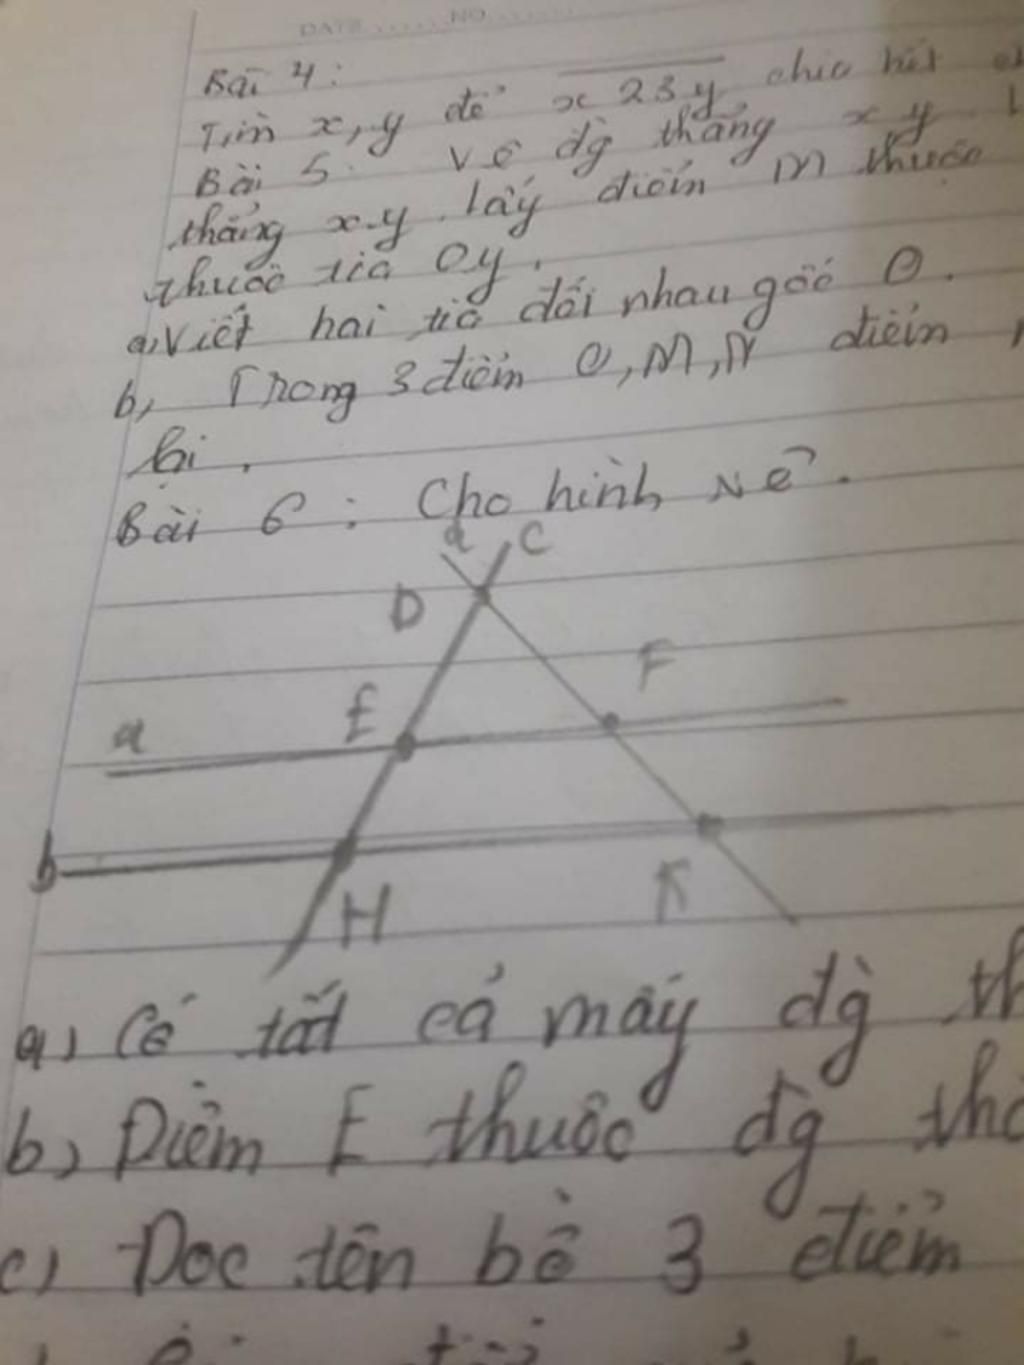 DATE ...... NO ......
Bài 4:
Tìm x, y để x23y chia hết
Bài 5: Vẽ đg thẳng xy.
thẳng xy. lấy điểm M thuộc
thuộc tia Oy.
a, Viết hai tia đối nhau gốc O.
b, Trong 3 điểm O, M, N điểm
lại.
Bài 6: Cho hình vẽ.
d C
D
F
E
a
b
H
K
a) Có tất cả mấy đg th
b) Điểm E thuộc đg
c) Đọc tên bộ 3 điểm